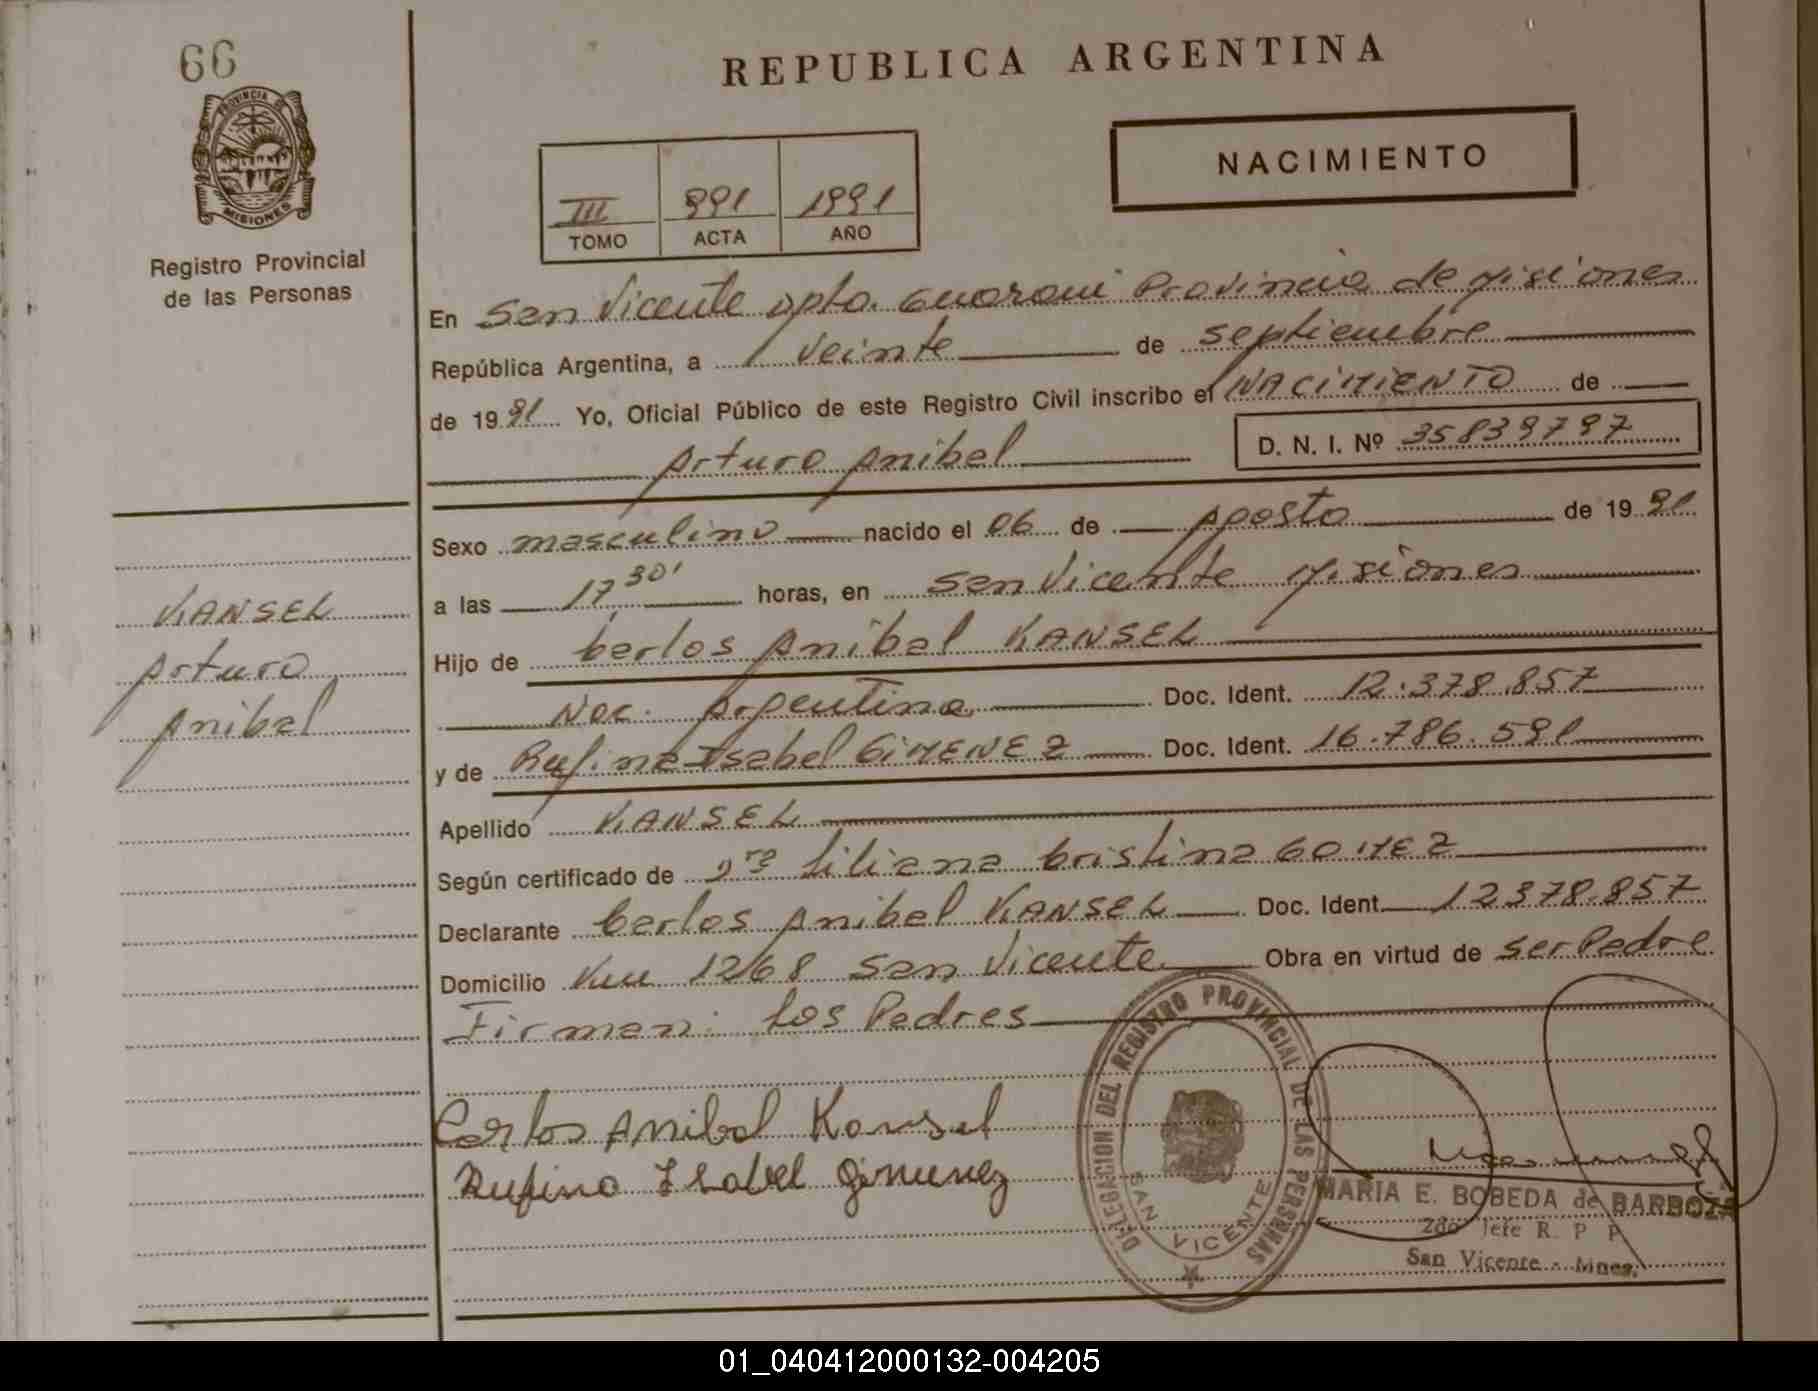 66
PROVINCIA DE
MISIONES
Registro Provincial
de las Personas
REPUBLICA ARGENTINA
III 991 1991
TOMO ACTA AÑO
NACIMIENTO
En San Vicente Dpto. Guarani Provincia de Misiones
República Argentina, a veinte de septiembre
de 1991 Yo, Oficial Público de este Registro Civil inscribo el NACIMIENTO de
Arturo Anibal D. N. I. Nº 35839797
Sexo masculino nacido el 06 de Agosto de 1991
a las 17,30' horas, en San Vicente Misiones
Hijo de Carlos Anibal KANSEL
Nac. Argentina Doc. Ident. 12.378.857
y de Rufina Isabel GIMENEZ Doc. Ident. 16.786.591
Apellido KANSEL
Según certificado de Dra Liliana Cristina GOMEZ
Declarante Carlos Anibal KANSEL Doc. Ident. 12378.857
Domicilio Km 1268 San Vicente Obra en virtud de ser Padre
Firman: Los Padres
KANSEL
Arturo
Anibal
Carlos Anibal Kansel
Rufina Isabel Gimenez
DELEGACION DEL REGISTRO PROVINCIAL DE LAS PERSONAS
SAN VICENTE
MARIA E. BOBEDA de BARBOZA
2do Jefe R. P. P.
San Vicente - Mnes.
01_040412000132-004205